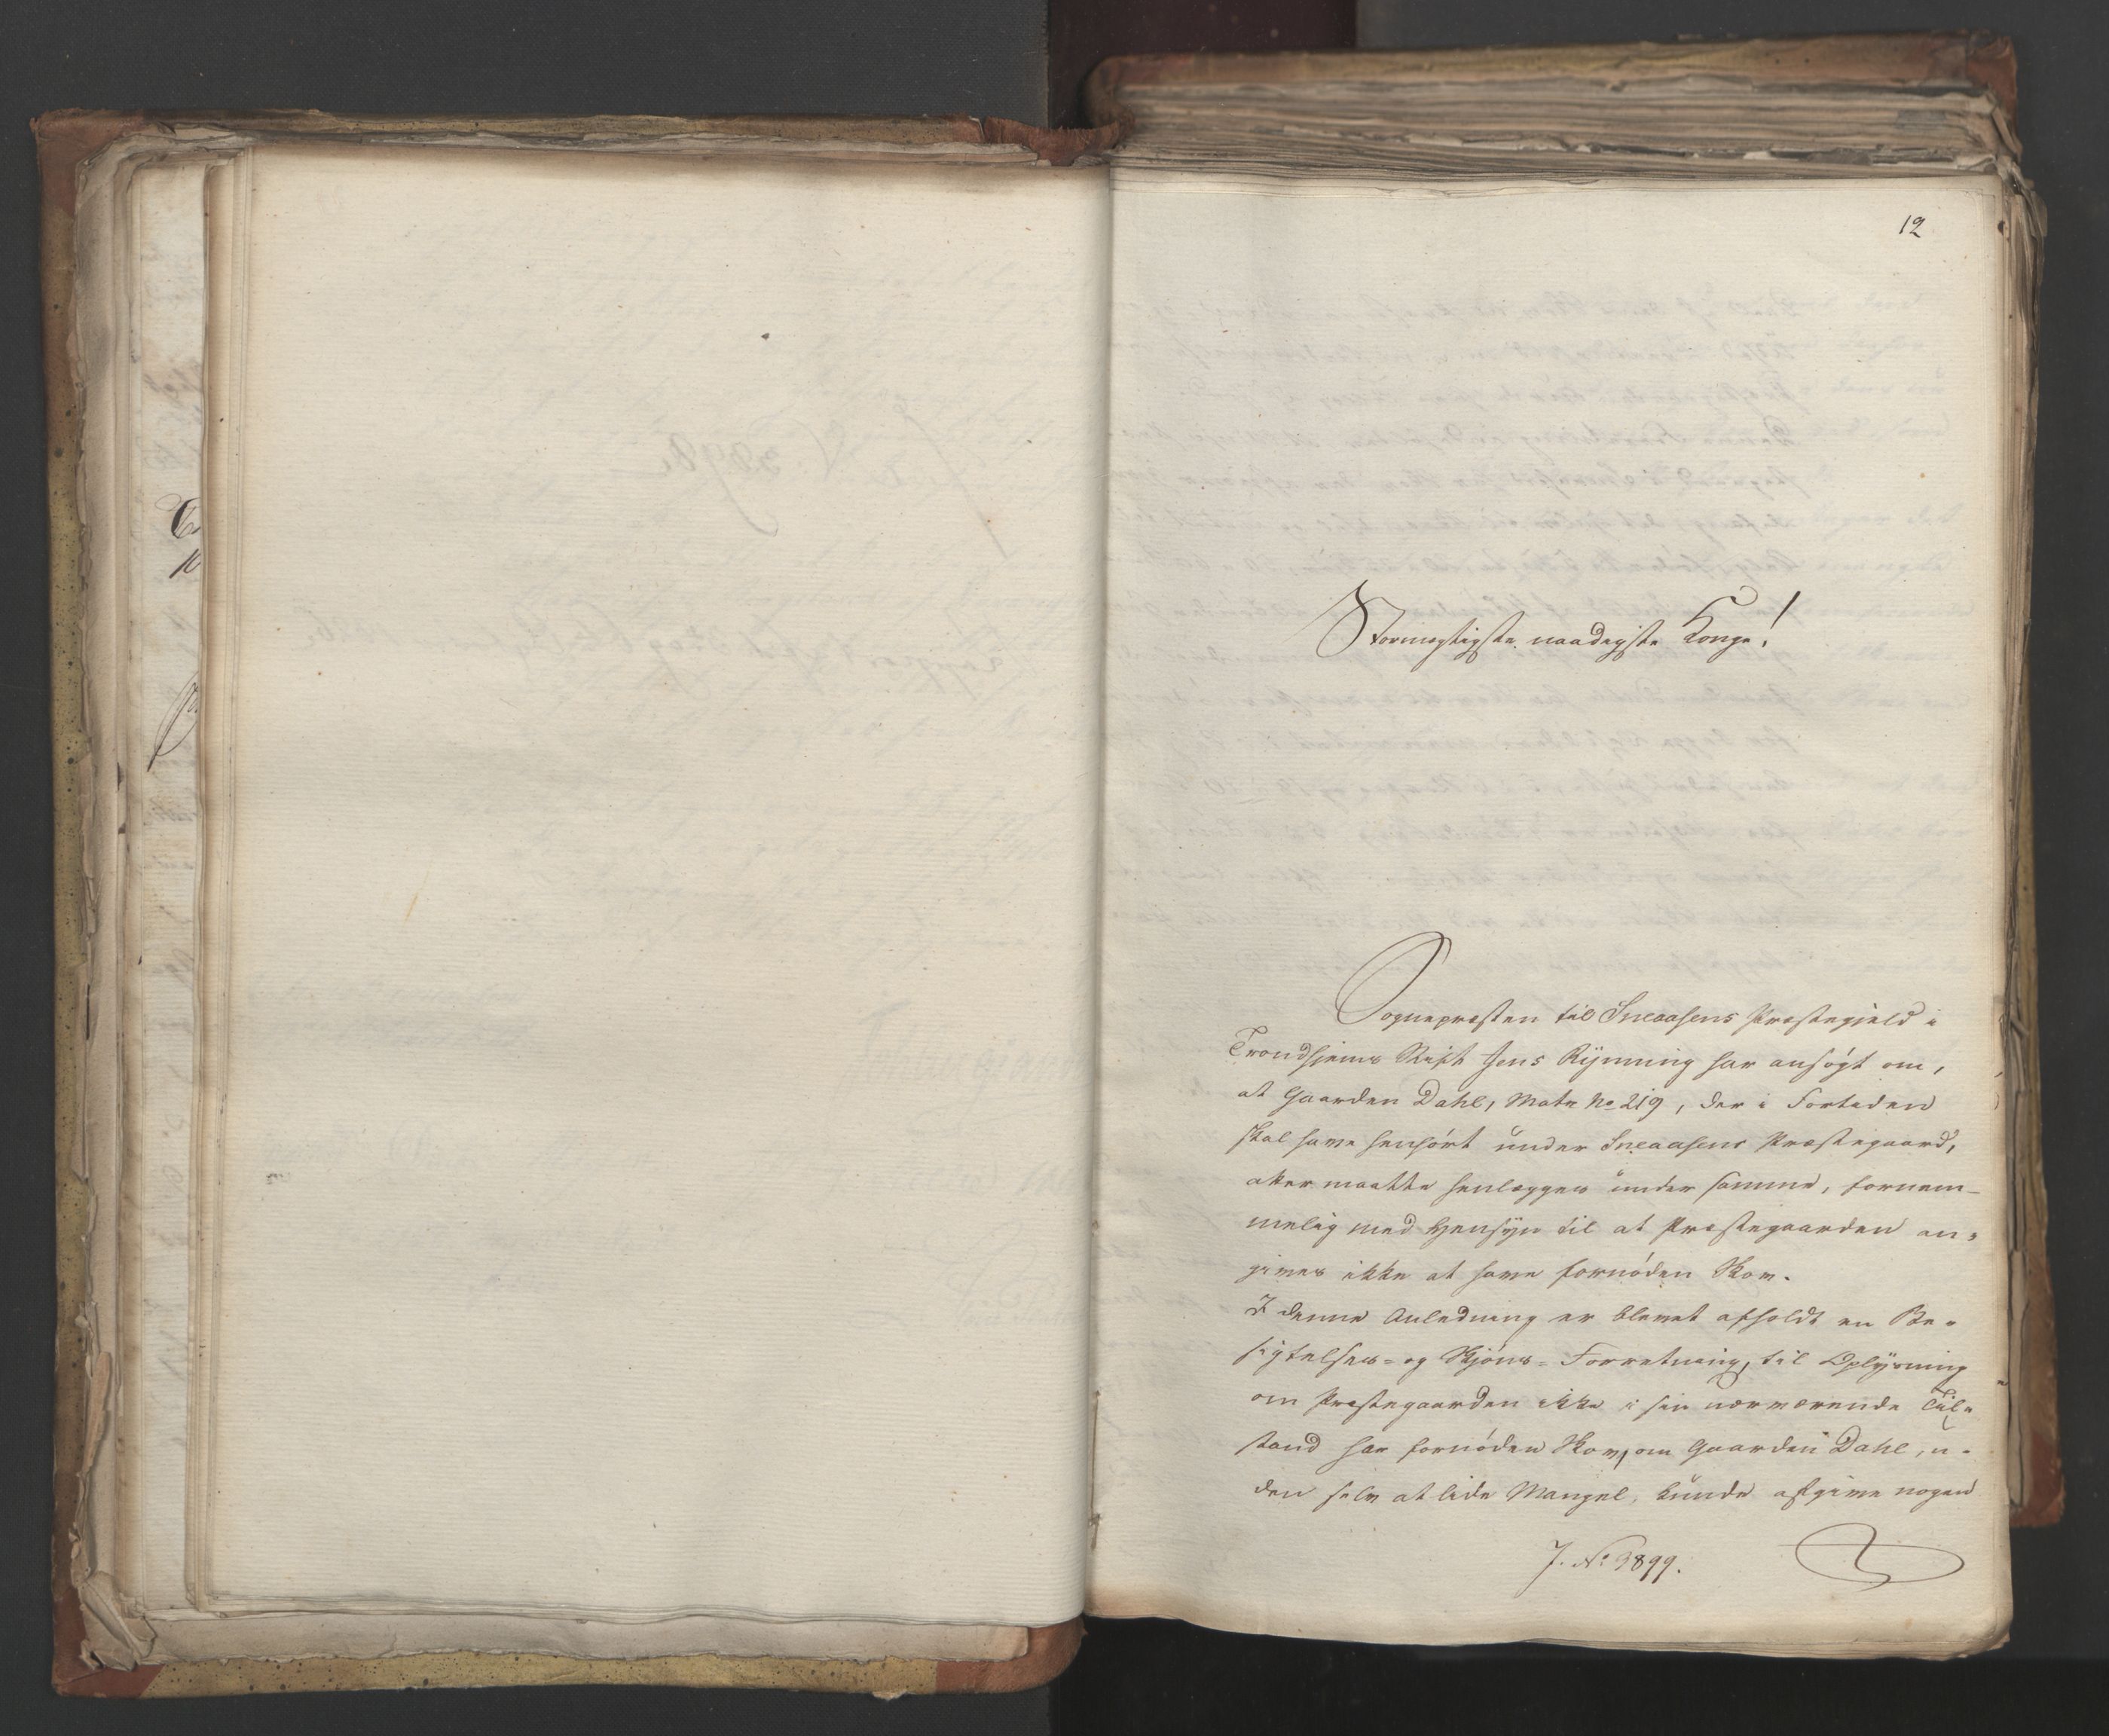 12
Stormægtigste, naadigste Konge!
Sognepræsten til Sneaasens Præstegjeld i
Trondhjems Stift Jens Rynning har ansøgt om,
at Gaarden Dahl, Matr No 219, der i Fortiden
skal have henhørt under Sneaasens Præstegaard,
atter maatte henlægges under samme, fornem-
melig med Hensyn til at Præstegaarden an-
gives ikke at have fornøden Skov.
I denne Anledning er blevet afholdt en Be-
sigtelses- og Skjøns-Forretning, til Oplysning
om Præstegaarden ikke i sin nærværende Til-
stand har fornøden Skov, om Gaarden Dahl, u-
den selv at lide Mangel, kunde afgive nogen
J. No 3899.